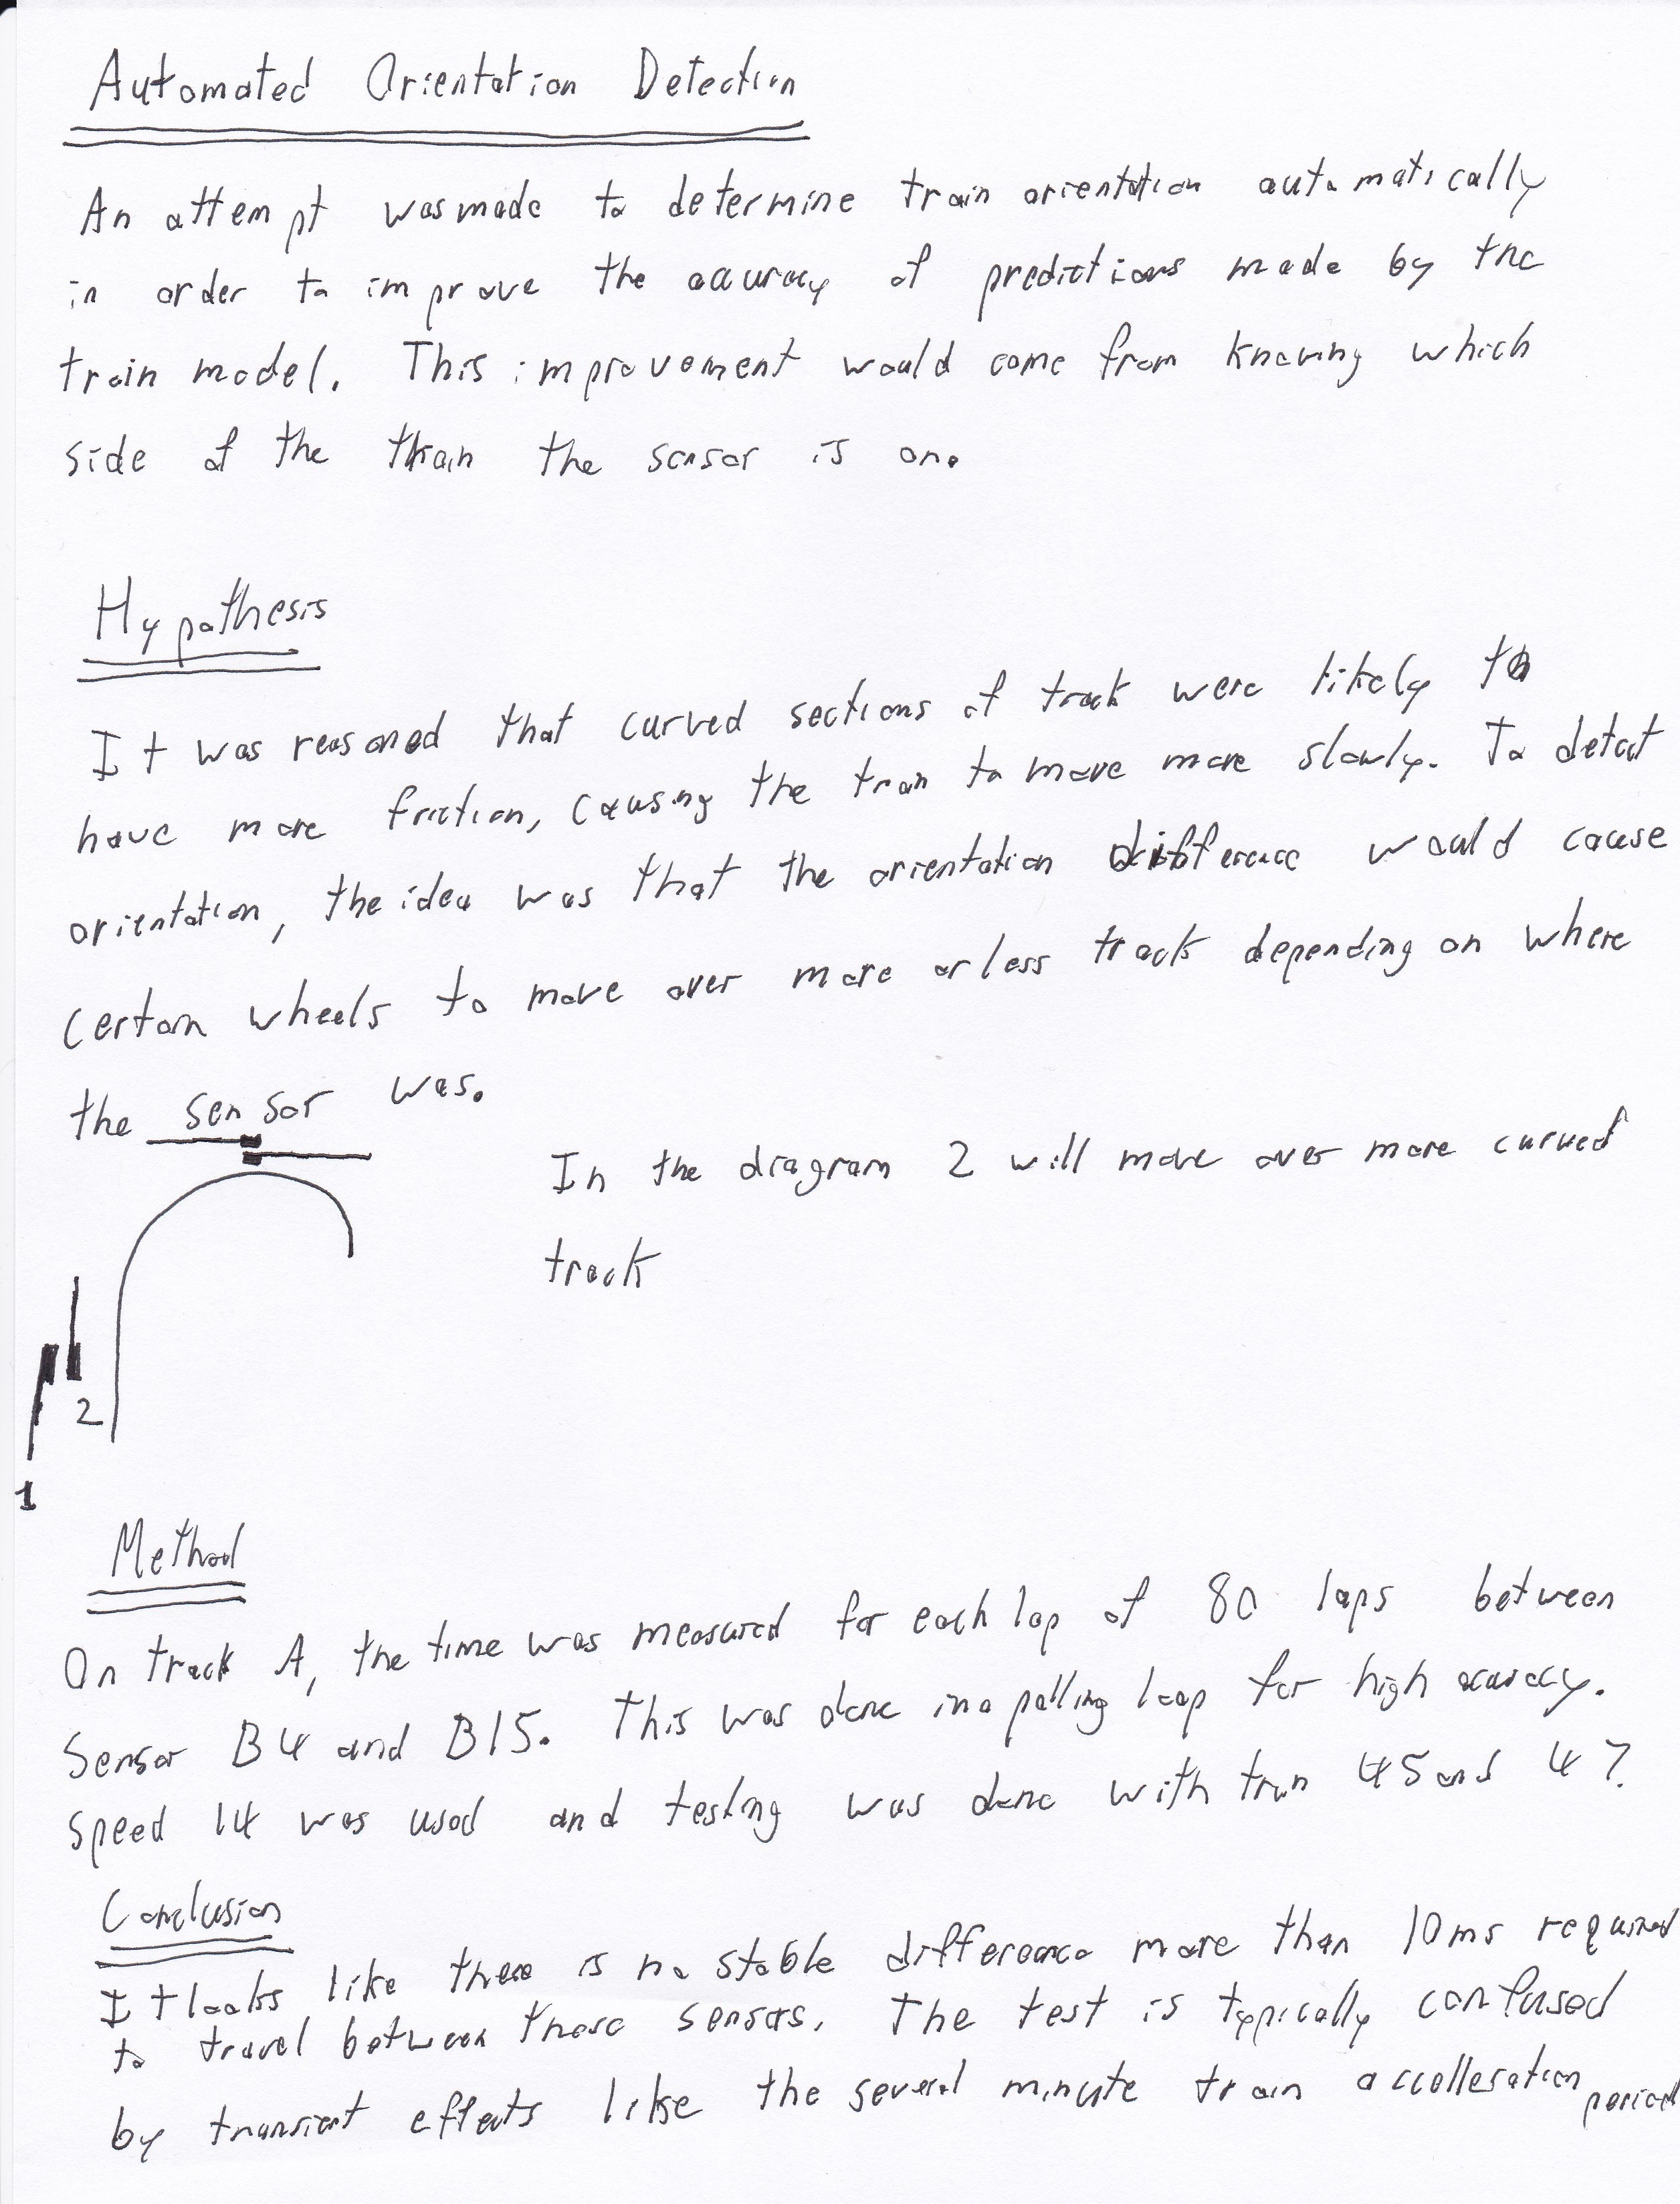 Automated Orientation Detection
An attempt was made to determine train orientation automatically
in order to improve the accuracy of predictions made by the
train model. This improvement would come from knowing which
side of the train the sensor is on.
Hypothesis
It was reasoned that curved sections of track were likely to
have more friction, causing the train to move more slowly. To detect
orientation, the idea was that the orientation difference would cause
certain wheels to move over more or less track depending on where
the sensor was.
In the diagram 2 will move over more curved
track
2
1
Method
On track A, the time was measured for each lap of 80 laps between
Sensor B4 and B15. This was done in a polling loop for high accuracy.
Speed 14 was used and testing was done with train 45 and 47.
Conclusion
It looks like there is no stable difference more than 10ms required
to travel between these sensors. The test is typically confused
by transient effects like the several minute train accelleration period